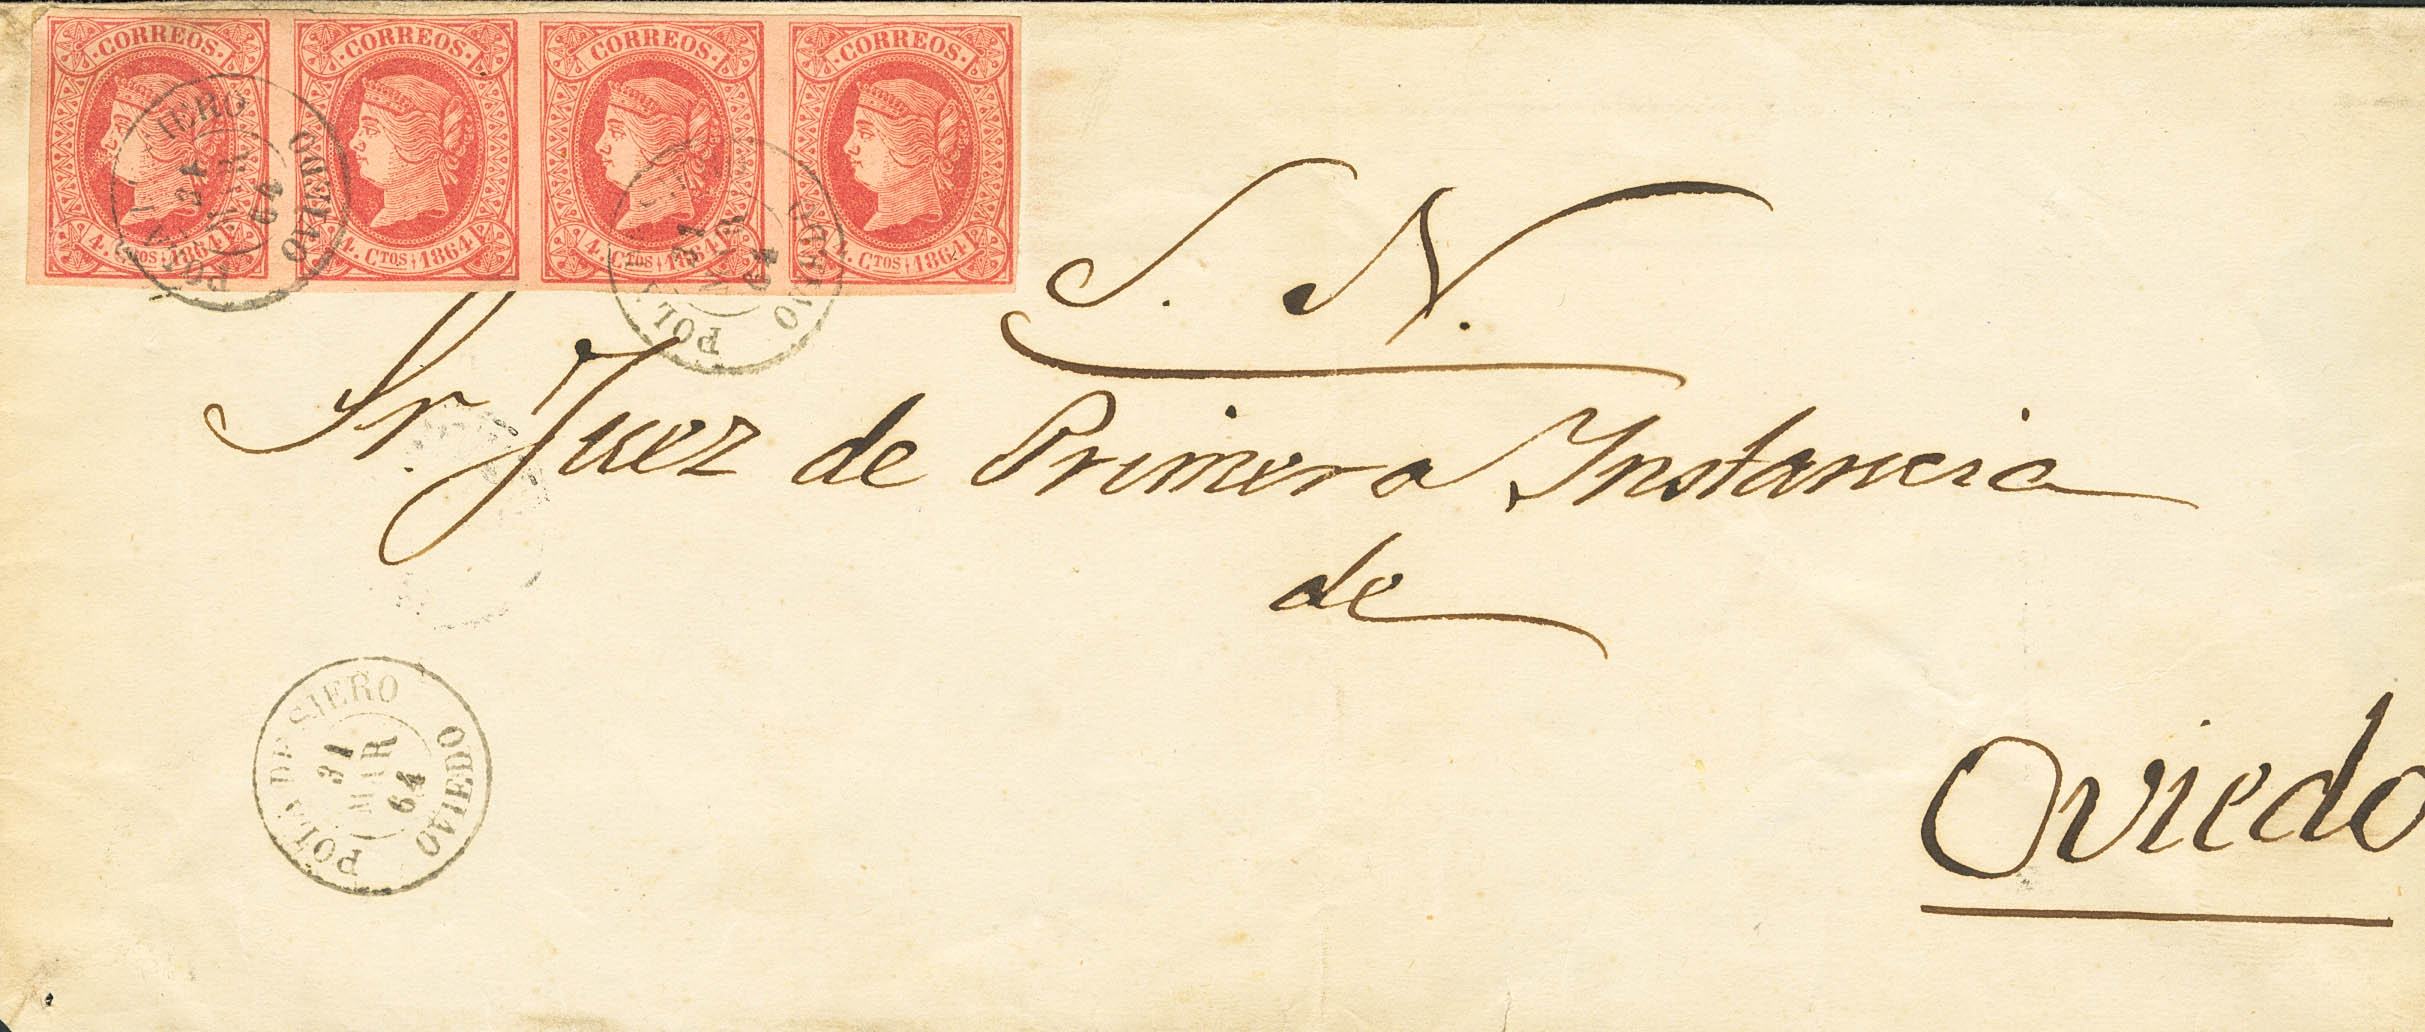 CORREOS CORREOS CORREOS CORREOS
4. CTOS 1864 4. CTOS 1864 4. CTOS 1864 4. CTOS 1864
POLA SIERO OVIEDO
31 MAR 64
POL OVIEDO
31 MAR 64
S. N.
Sr. Juez de Primera Instancia
de
Oviedo
POLA DE SIERO OVIEDO
31 MAR 64